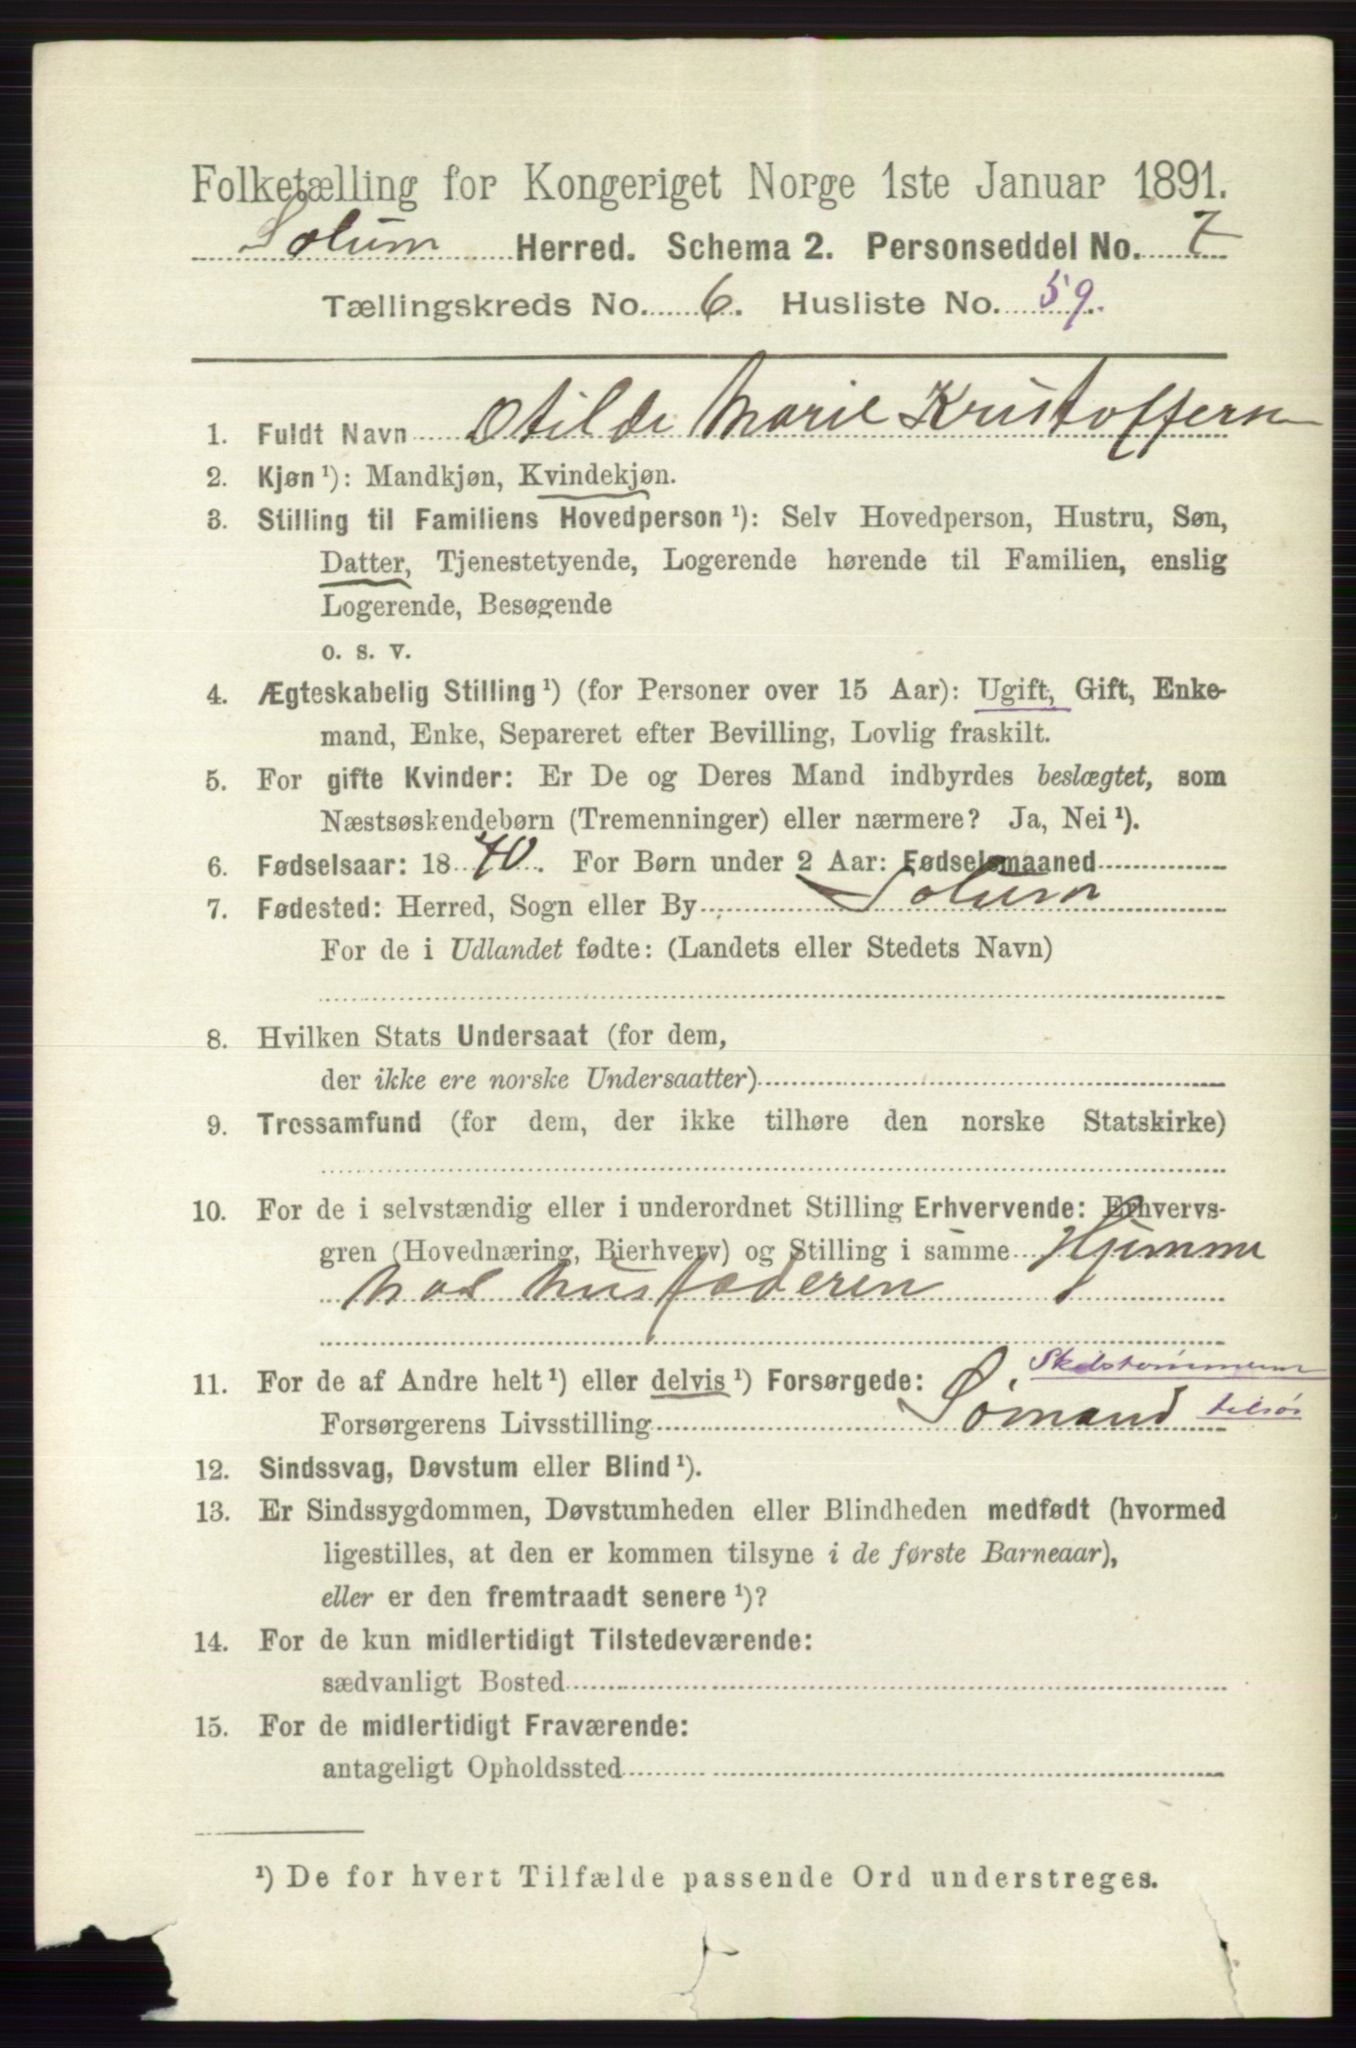 Folketælling for Kongeriget Norge 1ste Januar 1891.
Solum Herred. Schema 2. Personseddel No. 7
Tællingskreds No. 6. Husliste No. 59.
1. Fuldt Navn Otilde Marie Kristoffersen
2. Kjøn ¹): Mandkjøn, Kvindekjøn.
3. Stilling til Familiens Hovedperson ¹): Selv Hovedperson, Hustru, Søn,
Datter, Tjenestetyende, Logerende hørende til Familien, enslig
Logerende, Besøgende
o. s. v.
4. Ægteskabelig Stilling ¹) (for Personer over 15 Aar): Ugift, Gift, Enke-
mand, Enke, Separeret efter Bevilling, Lovlig fraskilt.
5. For gifte Kvinder: Er De og Deres Mand indbyrdes beslægtet, som
Næstsøskendebørn (Tremenninger) eller nærmere? Ja, Nei ¹).
6. Fødselsaar: 1870. For Børn under 2 Aar: Fødselsmaaned
7. Fødested: Herred, Sogn eller By Solum
For de i Udlandet fødte: (Landets eller Stedets Navn)
8. Hvilken Stats Undersaat (for dem,
der ikke ere norske Undersaatter)
9. Trossamfund (for dem, der ikke tilhøre den norske Statskirke)
10. For de i selvstændig eller i underordnet Stilling Erhvervende: Erhvervs-
gren (Hovednæring, Bierhverv) og Stilling i samme Hjemme
hos husfaderen
11. For de af Andre helt ¹) eller delvis ¹) Forsørgede:
Forsørgerens Livsstilling Sømand
12. Sindssvag, Døvstum eller Blind ¹).
13. Er Sindssygdommen, Døvstumheden eller Blindheden medfødt (hvormed
ligestilles, at den er kommen tilsyne i de første Barneaar),
eller er den fremtraadt senere ¹)?
14. For de kun midlertidigt Tilstedeværende:
sædvanligt Bosted
15. For de midlertidigt Fraværende:
antageligt Opholdssted
¹) De for hvert Tilfælde passende Ord understreges.